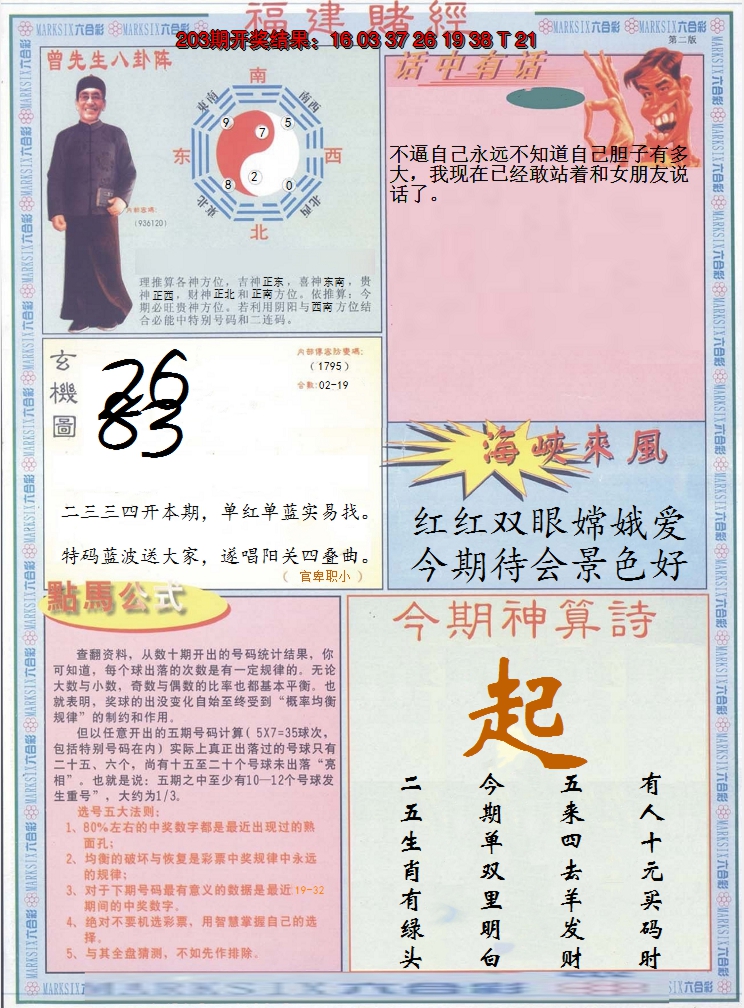 福建賭經
203期开奖结果：16 03 37 26 19 38 T 21
第二版
MARKSIX六合彩
曾先生八卦阵
南
東南
南西
9
7
5
东
西
8
2
0
東北
北西
北
内部密碼：
（936120）
理推算各神方位，吉神正东，喜神东南，贵
神正西，财神正北和正南方位。依推算：今
期必旺贵神方位。若利用阴阳与西南方位结
合必能中特别号码和二连码。
话中有话
不逼自己永远不知道自己胆子有多
大，我现在已经敢站着和女朋友说
话了。
玄機圖
26
83
内部傳密防變碼：
（1795）
合数：02-19
二三三四开本期，单红单蓝实易找。
特码蓝波送大家，遂唱阳关四叠曲。
（ 官卑职小 ）
海峽來風
红红双眼嫦娥爱
今期待会景色好
點馬公式
查翻资料，从数十期开出的号码统计结果，你
可知道，每个球出落的次数是有一定规律的。无论
大数与小数，奇数与偶数的比率也都基本平衡。也
就表明，奖球的出没变化自始至终受到“概率均衡
规律”的制约和作用。
但以任意开出的五期号码计算（ 5X7=35球次，
包括特别号码在内）实际上真正出落过的号球只有
二十五、六个，尚有十五至二十个号球未出落“亮
相”。也就是说：五期之中至少有10—12个号球发
生重号”，大约为1/3。
选号五大法则：
1、80%左右的中奖数字都是最近出现过的熟
面孔；
2、均衡的破坏与恢复是彩票中奖规律中永远
的规律；
3、对于下期号码最有意义的数据是最近19-32
期间的中奖数字。
4、绝对不要机选彩票，用智慧掌握自己的选
择。
5、与其全盘猜测，不如先作排除。
今期神算詩
起
有人十元买码时
五来四去羊发财
今期单双里明白
二五生肖有绿头